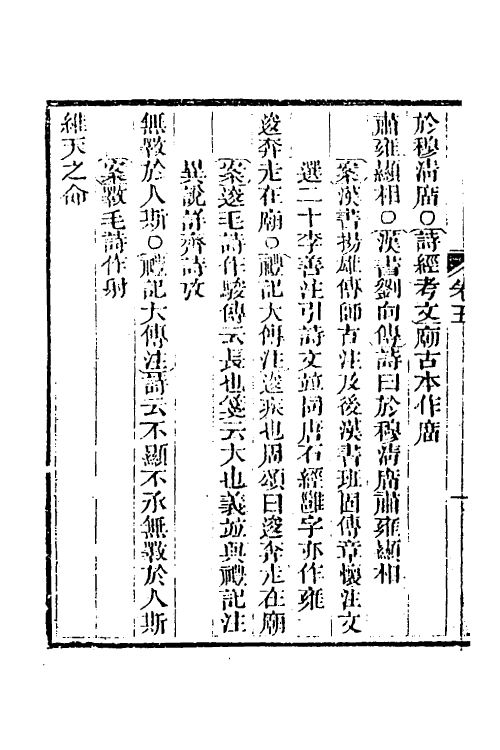 卷五
於穆淸廣○詩經考文廟古本作廣
肅雍顯相○漢書劉向傳詩曰於穆淸廣肅雍顯相
案漢書揚雄傳師古注及後漢書班固傳章懷注文
選二十李善注引詩文並同唐石經雝字亦作雍
逡奔走在廟○禮記大傳注逡疾也周頌曰逡奔走在廟
案逡毛詩作駿傳云長也箋云大也義並與禮記注
異說詳齊詩攷
無斁於人斯○禮記大傳注詩云不顯不承無斁於人斯
案斁毛詩作射
維天之命